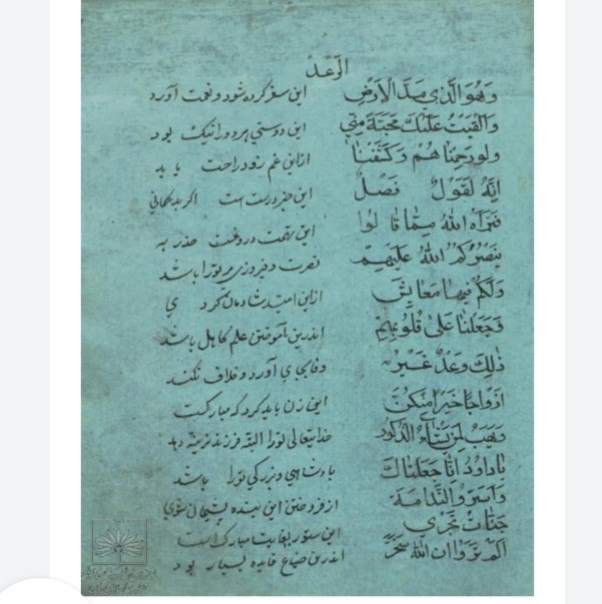 الرّعد
وَهُوَ الَّذِي مَدَّ الْاَرْضَ این سفر کرده شود و نعمت آورد
وَاَلْقَيْتُ عَلَيْكَ مَحَبَّةً مِنِّي این دوستی هر دو را نیک بود
ولو رَحِمْنَاهُمْ وَكَشَفْنَا از این غم زود راحت یابد
اِنَّهُ لَقَوْلٌ فَصْلٌ این خبر درست است اگر بدگمانی
فَبَرَّأَهُ اللهُ مِمَّا قَالُوا این تهمت دروغست حذر به
يَنْصُرْكُمُ اللهُ عَلَيْهِمْ نصرت و فیروزی مر تورا باشد
وَلَكُمْ فِيهَا مَعَايِشَ از این امید شادمان گردی
وَجَعَلْنَا عَلَى قُلُوبِهِمْ اندرین آموختن علم کاهل باشد
ذٰلِكَ وَعْدٌ غَيْرُ وفا بجای آورد و خلاف نکند
اَزْوَاجًا خَيْرًا مِنْكُنَّ این زن باید کرد که مبارکست
وَيَهَبُ لِمَنْ يَشَاءُ الذُّكُورَ خدایتعالی تورا البته فرزند نرینه دهد
يَا دَاوُدُ اِنَّا جَعَلْنَاكَ پادشاهی و بزرگی تورا باشد
وَاَسَرُّوا النَّدَامَةَ از فروختن این بنده پشیمان شوی
جَنَّاتٍ تَجْرِي این ستور بغایت مبارک است
اَلَمْ تَرَوْا اَنَّ اللهَ سَخَّرَ اندرین ضیاع فایده بسیار بود